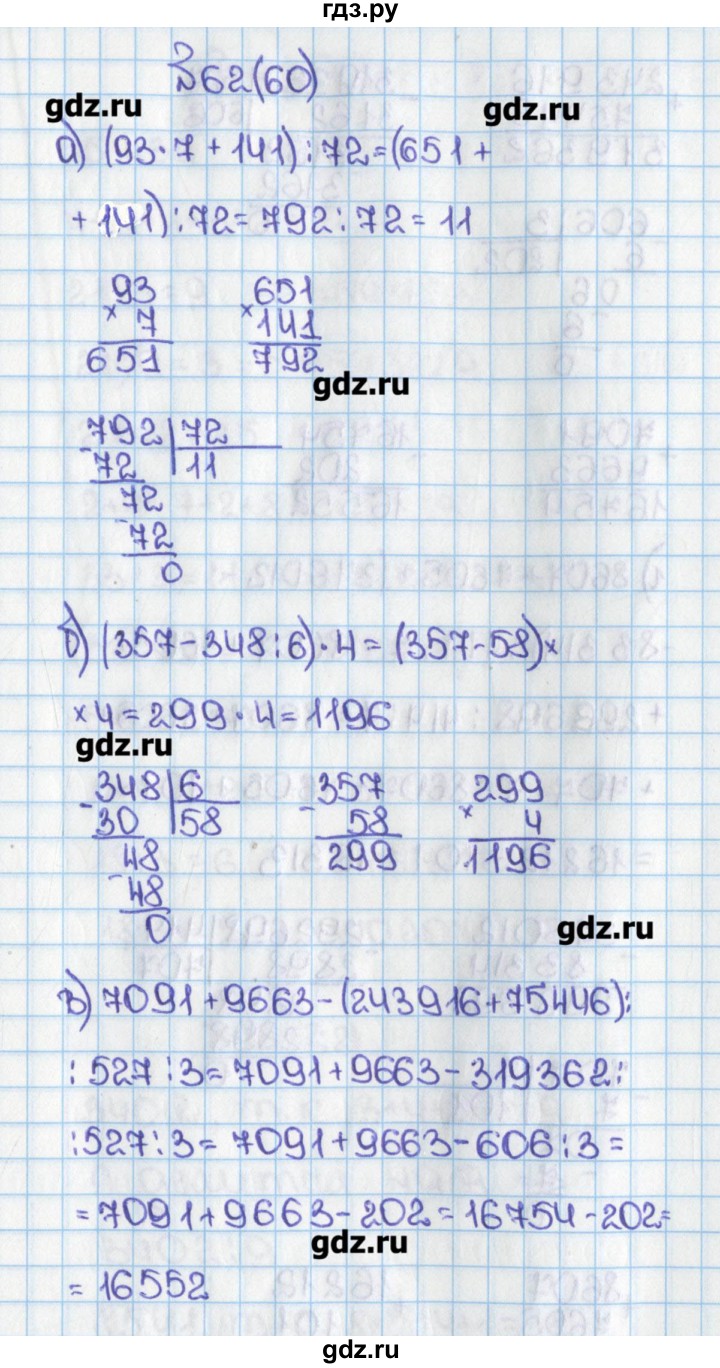 гдз.ру
№62(60)
gdz.ru
gdz.ru
а) (93·7+141):72=(651+
+141):72=792:72=11
93
× 7
651
651
×141
792
gdz.ru
792|72
-72 |11
72
-72
0
б) (357-348:6)·4=(357-58)×
×4=299·4=1196
gdz.ru
-348|6
30 |58
48
-48
0
-357
58
299
×299
4
1196
gdz.ru
в) 7091+9663-(243916+75446):
:527:3=7091+9663-319362:
:527:3=7091+9663-606:3=
=7091+9663-202=16754-202=
gdz.ru
=16552
gdz.ru